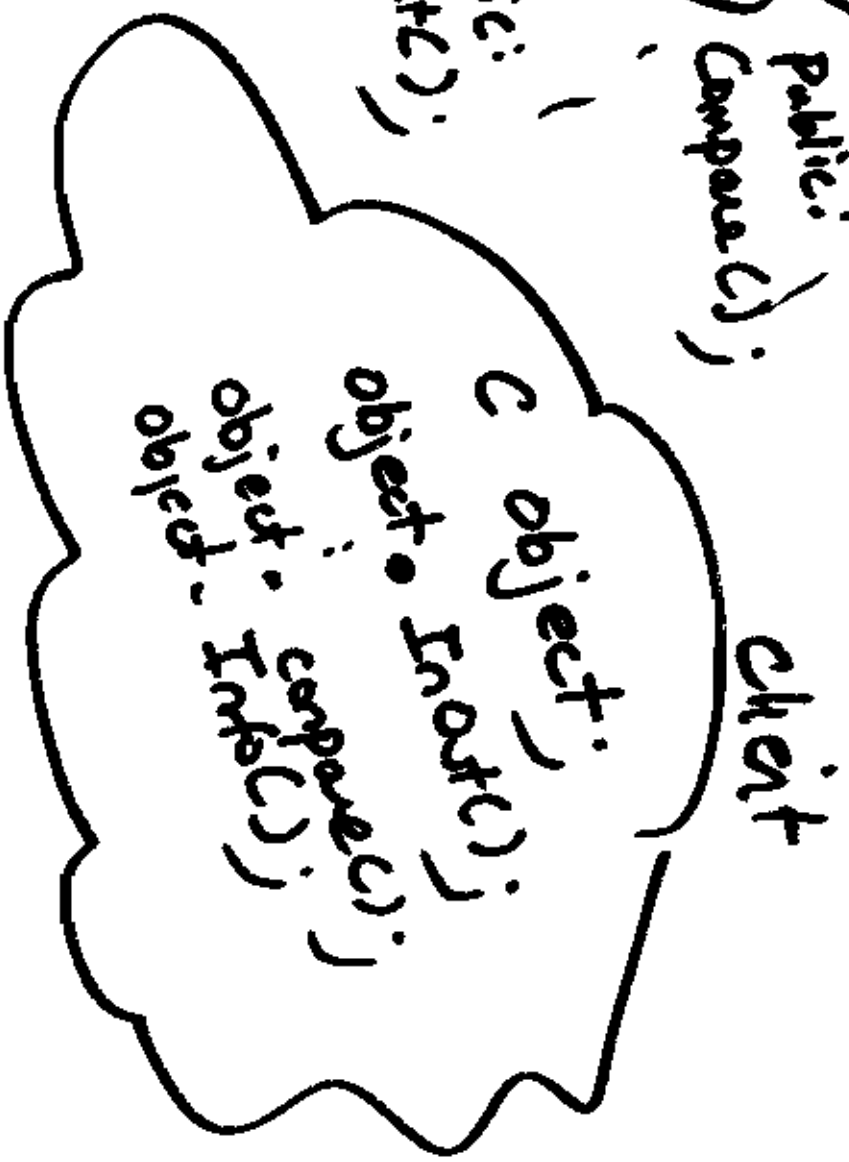 Public:
Compare();
ic:
t();
Client
C object;
object. InOrt();
:
object. compare();
object. Info();